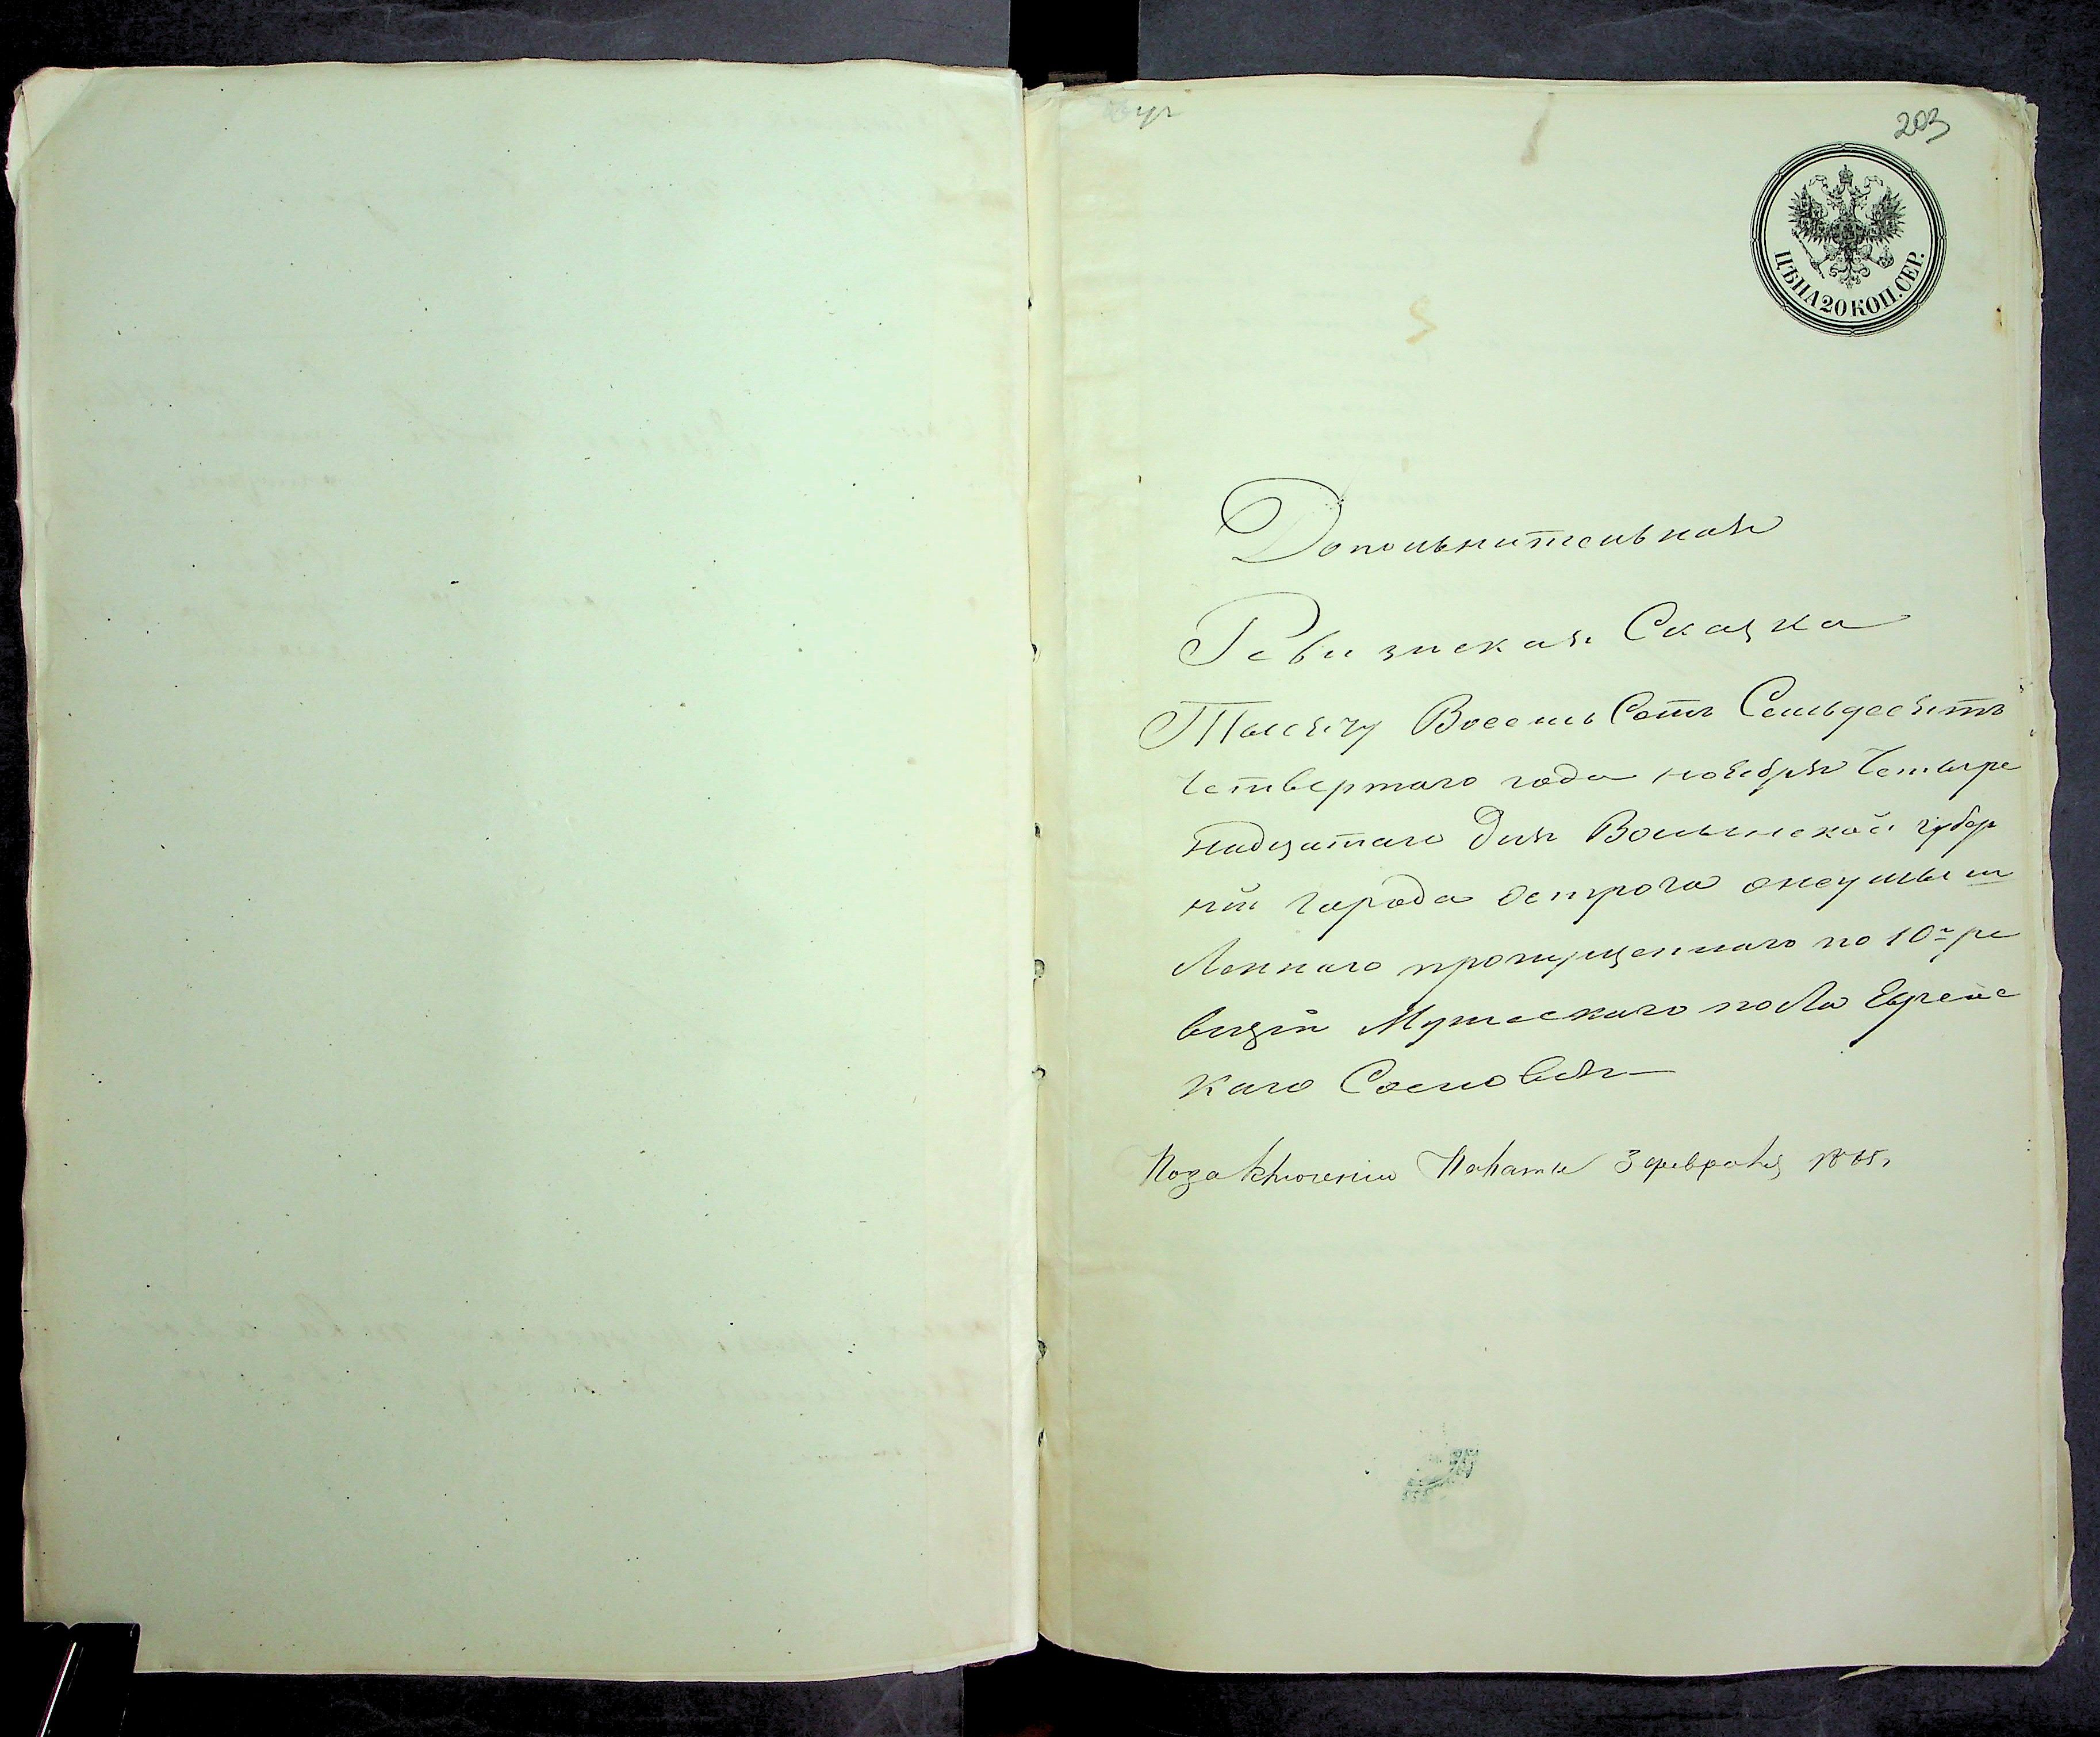 203
ЦѢНА 20 КОП. СЕР.
Дополнительная
Ревизская Сказка
Тысячу Восемь Сотъ Семьдесятъ
Четвертаго года ноября Четыре
надцатаго дня Волынской губер
ніи города Острога о неумыш
Ленного пропущенного по 10й ре
визіи Мужескаго пола Еврейс
каго Сословія
По заключенію Палаты 3 февраля